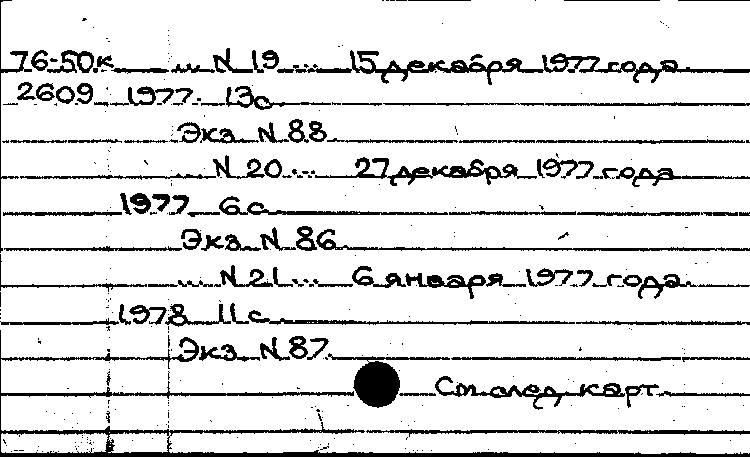 76-50к ... N 19 ... 15 декабря 1977 года.
2609 1977. 13с.
Экз. N 88.
... N 20 ... 27 декабря 1977 года
1977. 6 с.
Экз. N 86.
... N 21 ... 6 января 1977 года.
1978 11 с.
Экз. N 87.
См. след. карт.